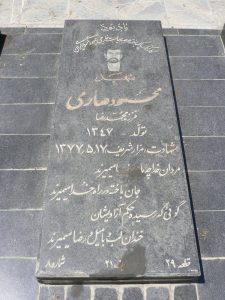 شهید
محمود صارمی
فرزند محمدرضا
تولد ۱۳۴۷
شهادت مزار شریف ۱۳۷۷,۵,۱۷
مردان خدا چه میمیرند
جان باخته در راه خدا میمیرند
گوئی که رسیده حکم آزادیشان
خندان لب و با میل و رضا میمیرند
قطعه ۲۹ ۲۱ شماره ۸